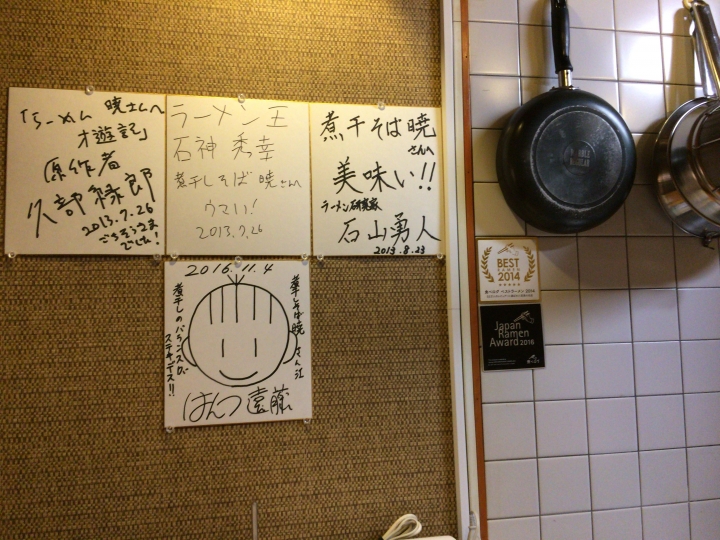 「らーめん
才遊記」
暁さんへ
原作者
久部緑郎
2013.7.26
ごちそうさま
でした!
ラーメン王
石神秀幸
煮干しそば 暁さんへ
ウマい!
2013.7.26
煮干そば 暁
さんへ
美味い!!
ラーメン研究家
石山勇人
2013.8.23
2016.11.4
煮干そば 暁さん江
煮干しのバランスが
ステキデス!!
はんつ遠藤
BEST
RAMEN
2014
食べログ ベストラーメン 2014
Japan
Ramen
Award 2016